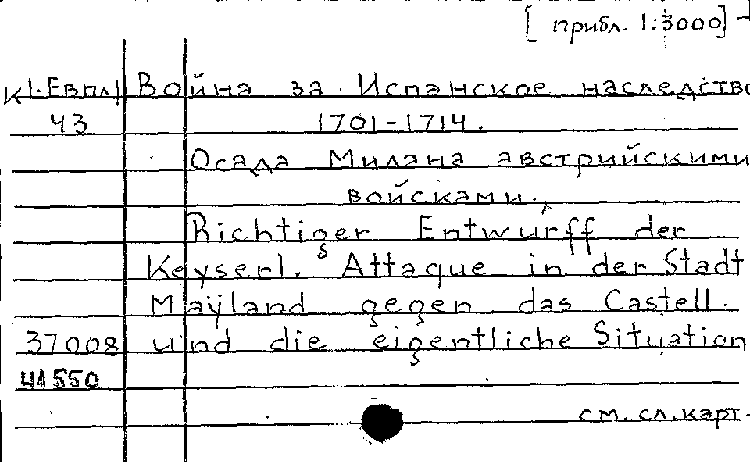 [прибл. 1:3000]
К1-Евпл1 Война за Испанское наследство
43 1701-1714.
Осада Милана австрийскими
войсками.
Richtiger Entwurff der
Keyserl. Attaque in der Stadt
Maÿland gegen das Castell.
37008 und die eigentliche Situation
41550
см. сл. карт.